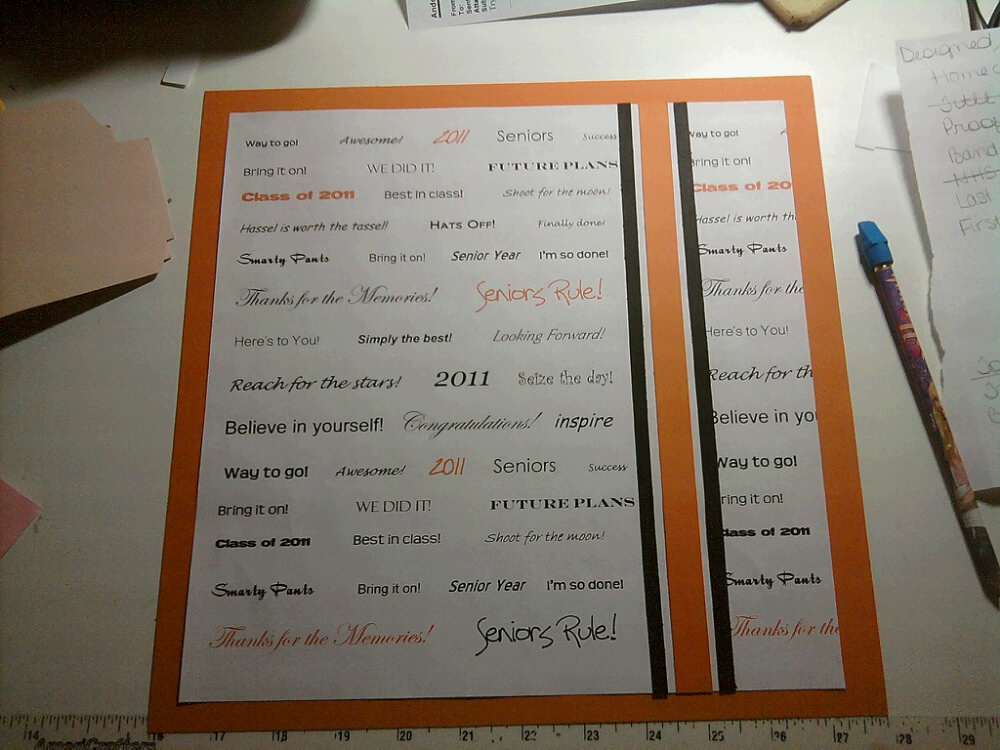 Way to go! Awesome! 2011 Seniors Success
Bring it on! WE DID IT! FUTURE PLANS
Class of 2011 Best in class! Shoot for the moon!
Hassel is worth the tassel! HATS OFF! Finally done!
Smarty Pants Bring it on! Senior Year I'm so done!
Thanks for the Memories! Seniors Rule!
Here's to You! Simply the best! Looking Forward!
Reach for the stars! 2011 Seize the day!
Believe in yourself! Congratulations! inspire
Way to go! Awesome! 2011 Seniors Success
Bring it on! WE DID IT! FUTURE PLANS
Class of 2011 Best in class! Shoot for the moon!
Smarty Pants Bring it on! Senior Year I'm so done!
Thanks for the Memories! Seniors Rule!
Way to go!
Bring it on!
Class of 20
Hassel is worth th
Smarty Pants
Thanks for the
Here's to You!
Reach for th
Believe in you
Way to go!
Bring it on!
Class of 2011
Smarty Pants
Thanks for the
Designed
Homec
Proo
Band
NHS
Last
First
14 16 17 18 19 20 21 22 23 24 25 26 27 28 29